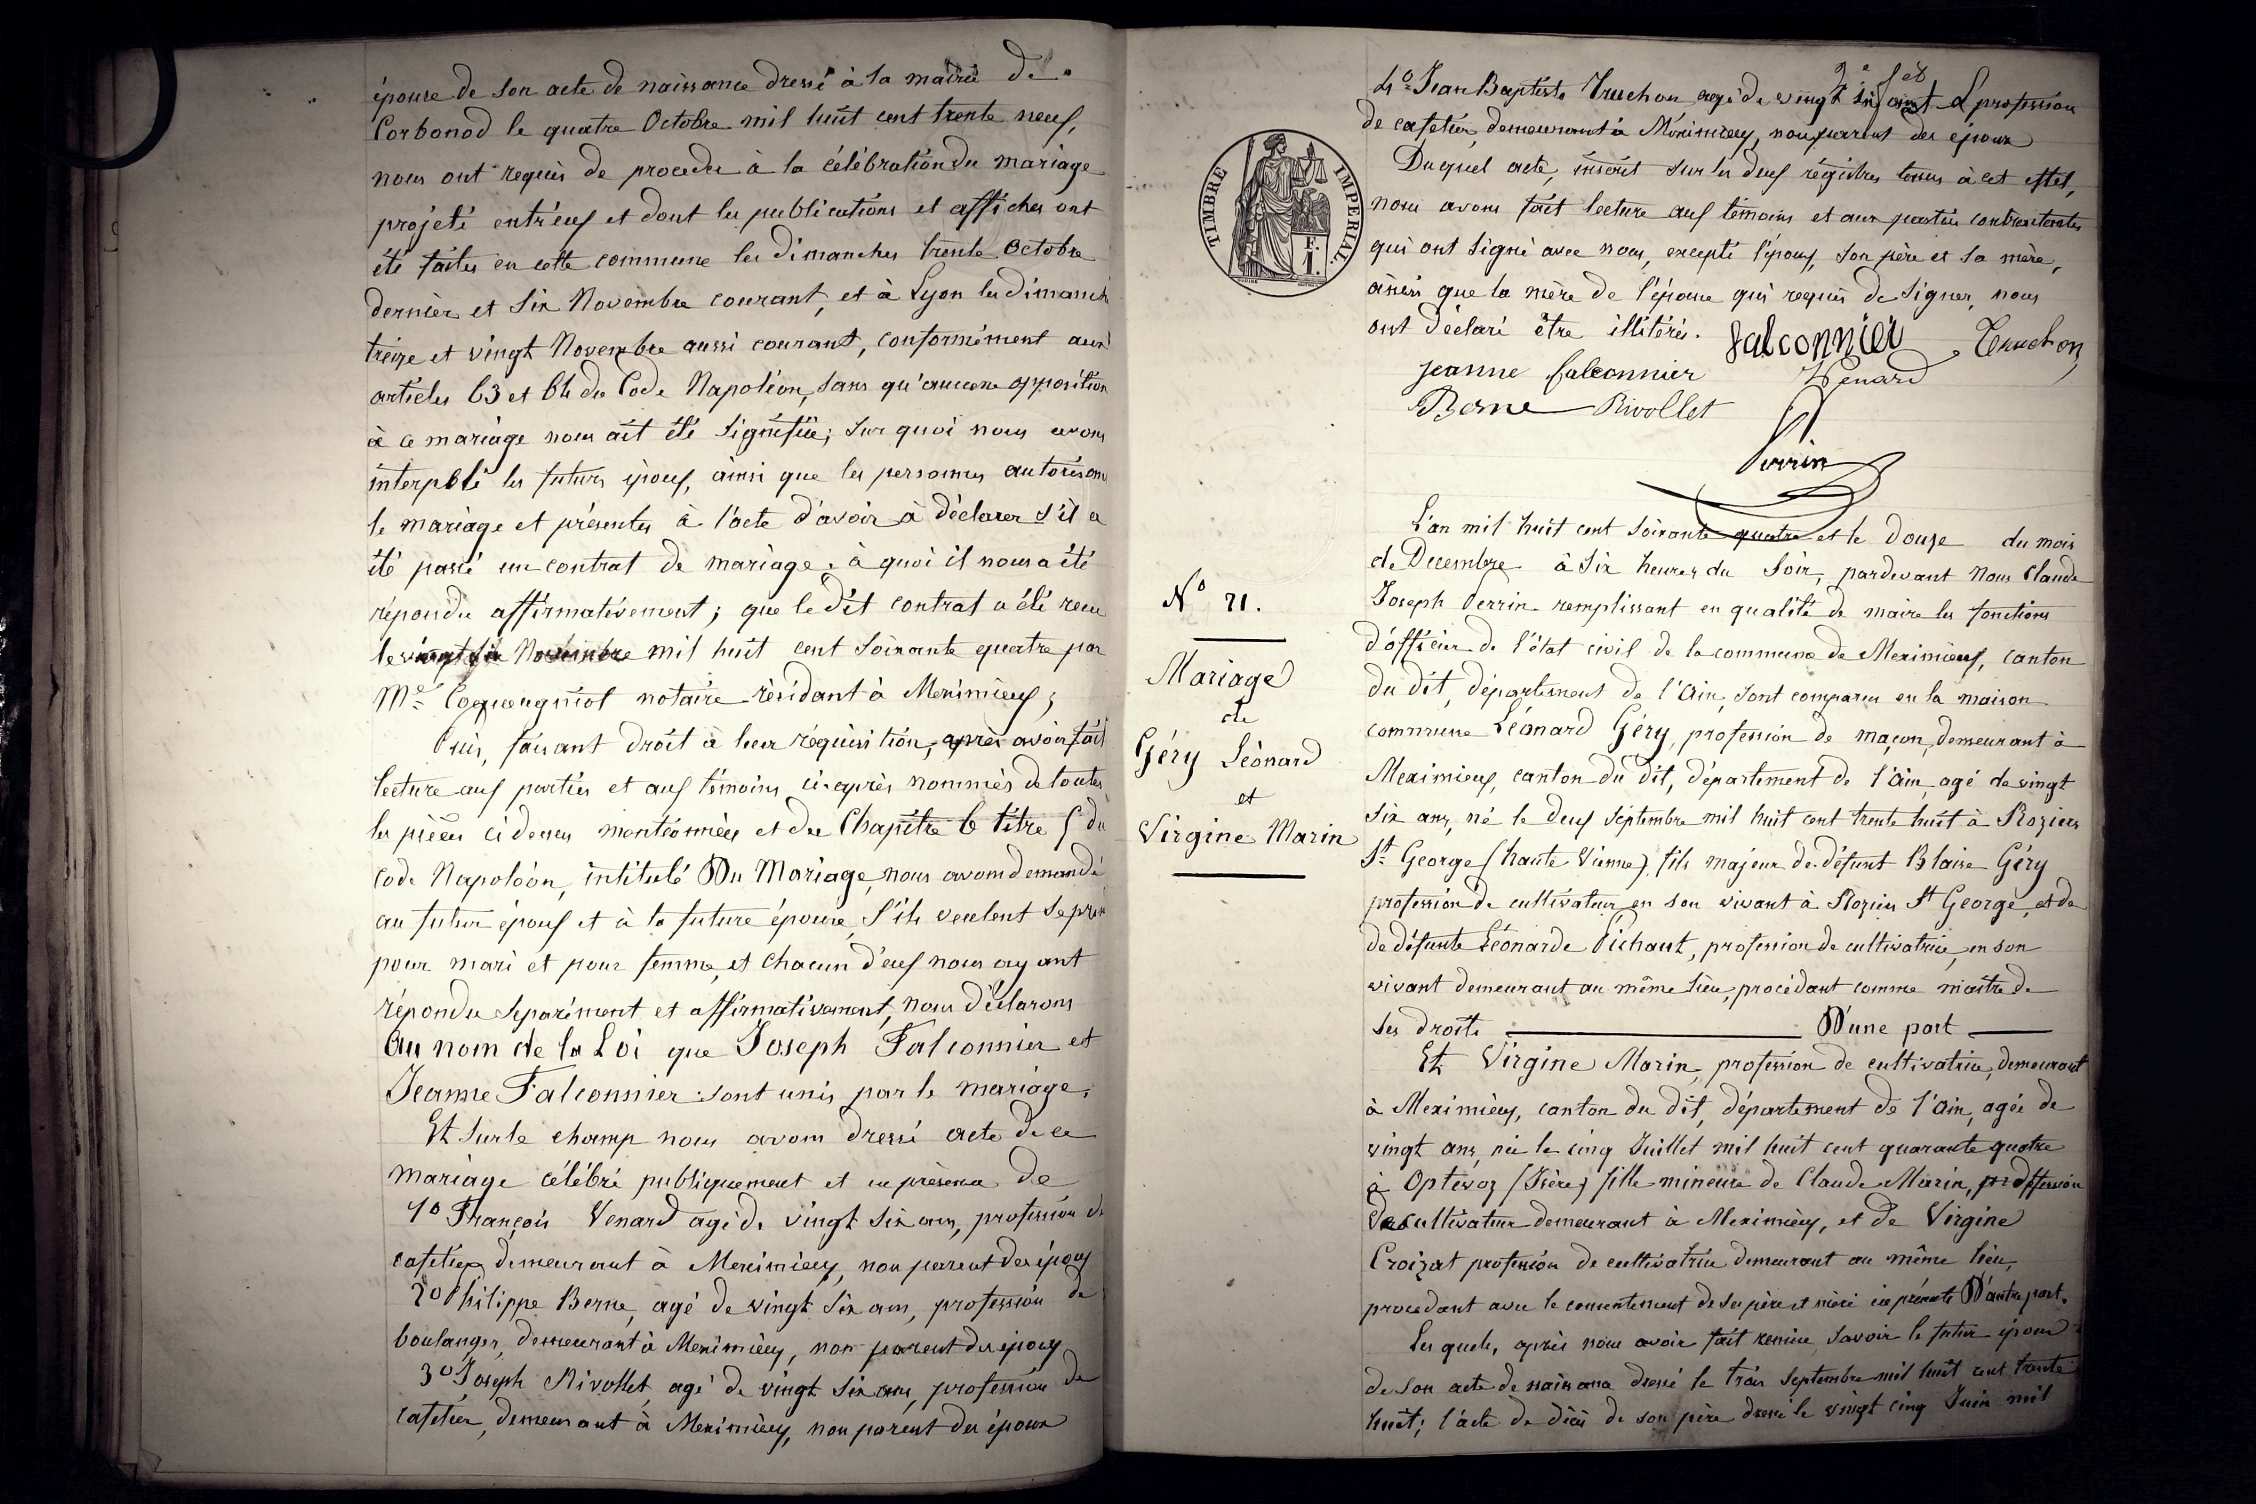 épouse de son acte de naissance dressé à la mairie de
Corbonod le quatre Octobre mil huit cent trente neuf,
nous ont requis de proceder à la célébration du mariage
projeté entr'eux et dont les publications et affiches ont
été faites en cette commune les dimanches trente Octobre
dernier et six Novembre courant, et à Lyon les dimanch
treize et vingt Novembre aussi courant, conformément aux
articles 63 et 64 du Code Napoléon, sans qu'aucune opposition
à ce mariage nous ait été signifiée; sur quoi nous avons
interpellé les futurs époux, ainsi que les personnes autorisant
le mariage et présentes à l'acte d'avoir à déclarer s'il a
été passé un contrat de mariage. à quoi il nous a été
répondu affirmativement; que le dit contrat a été recu
le vingt six Novembre mil huit cent soixante quatre par
Me notaire résidant à Meximieux;
Puis, faisant droit à leur réquisition, après avoir fait
lecture aux parties et aux témoins ci-après nommés de toutes
les pièces ci dessus mentionnées et du Chapitre 6 titre 5 du
Code Napoléon, intitulé Du Mariage, nous avons demandé
au futur époux et à la future épouse, s'ils veulent se pren
pour mari et pour femme, et chacun d'eux nous ayant
répondu séparément et affirmativement, nous déclarons
Au nom de la Loi que Joseph Falconnier et
Jeanne Falconnier sont unis par le mariage.
Et sur le champ nous avons dressé acte de ce
mariage célébré publiquement et en présence de
1o François Venard agé de vingt six ans, profession de
cafetier demeurant à Meximieux, non parent des époux
2o Philippe Berne, agé de vingt six ans, profession de
boulanger, demeurant à Meximieux, non parent des époux
3o Joseph Rivollet, agé de vingt six ans, profession de
cafetier, demeurant à Meximieux, non parent des époux
4o Jean Baptiste Truchon agé de vingt profession
de cafetier, demeurant à Meximieux, non parent des époux
Duquel acte, inscrit sur les deux régistres tenus à cet effet,
nous avons fait lecture aux témoins et aux parties contractantes
qui ont signé avec nous, excepté l'époux, son père et sa mère,
ainsi que la mère de l'épouse qui requis de signer, nous
ont déclaré être illitérés.
falconnier Truchon
jeanne falconnier Venard
Berne Rivollet
Perrin
TIMBRE IMPERIAL.
F.
1.
No 71.
Mariage
de
Géry Léonard
et
Virgine Marin
L'an mil huit cent soixante quatre et le douze du mois
de Decembre à six heures du soir, pardevant nous Claude
Joseph Perrin remplissant en qualité de maire les fonctions
d'officier de l'état civil de la commune de Meximieux, canton
du dit, département de l'Ain, sont comparus en la maison
commune Léonard Géry, profession de maçon, demeurant à
Meximieux, canton du dit, département de l'Ain, agé de vingt
six ans, né le deux Septembre mil huit cent trente huit à Roziers
St George (haute Vienne), fils majeur de défunt Blaise Géry
profession de cultivateur en son vivant à Roziers St George, et de
de défunte Léonarde Pichaut, profession de cultivatrice, en son
vivant demeurant au même lieu, procédant comme maître de
ses droits D'une part
Et Virgine Marin, profession de cultivatrice, demeurant
à Meximieux, canton du dit, département de l'Ain, agée de
vingt ans, née le cinq Juillet mil huit cent quarante quatre
à Optevoz (Isère) fille mineure de Claude Marin, profession
de cultivateur demeurant à Meximieux, et de Virgine
Croizat profession de cultivatrice demeurant au même lieu,
procédant avec le consentement de ses père et mère ici présents D'autre part.
Les quels, après nous avoir fait remise, savoir le futur époux
de son acte de naissance dressé le trois Septembre mil huit cent trente
huit; l'acte de décès de son père dressé le vingt cinq Juin mil